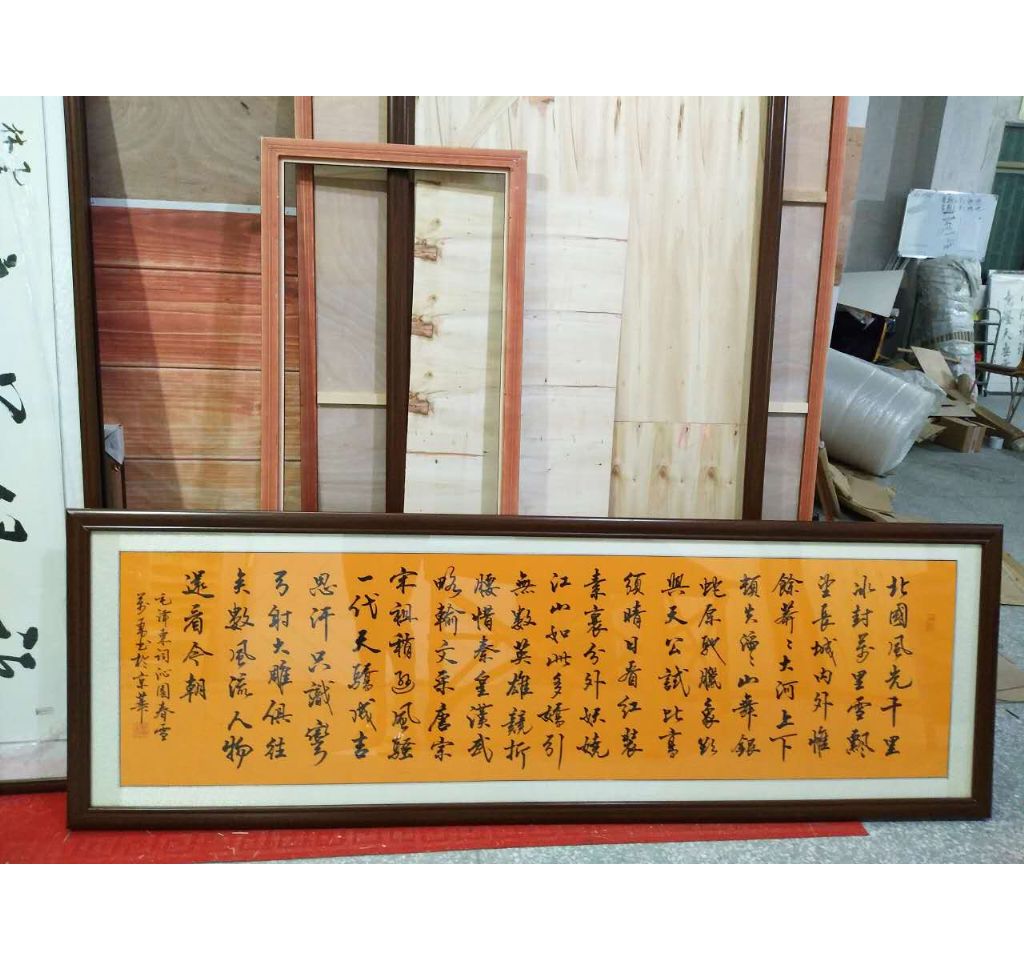 北國風光千里
冰封萬里雪飄
望長城內外惟
餘莽〻大河上下
頓失滔〻山舞銀
蛇原馳臘象欲
與天公試比高
須晴日看紅裝
素裹分外妖嬈
江山如此多嬌引
無數英雄競折
腰惜秦皇漢武
略輸文采唐宗
宋祖稍遜風騷
一代天驕成吉
思汗只識彎
弓射大雕俱往
矣數風流人物
還看今朝
毛澤東詞沁園春雪
萬勇书於京華